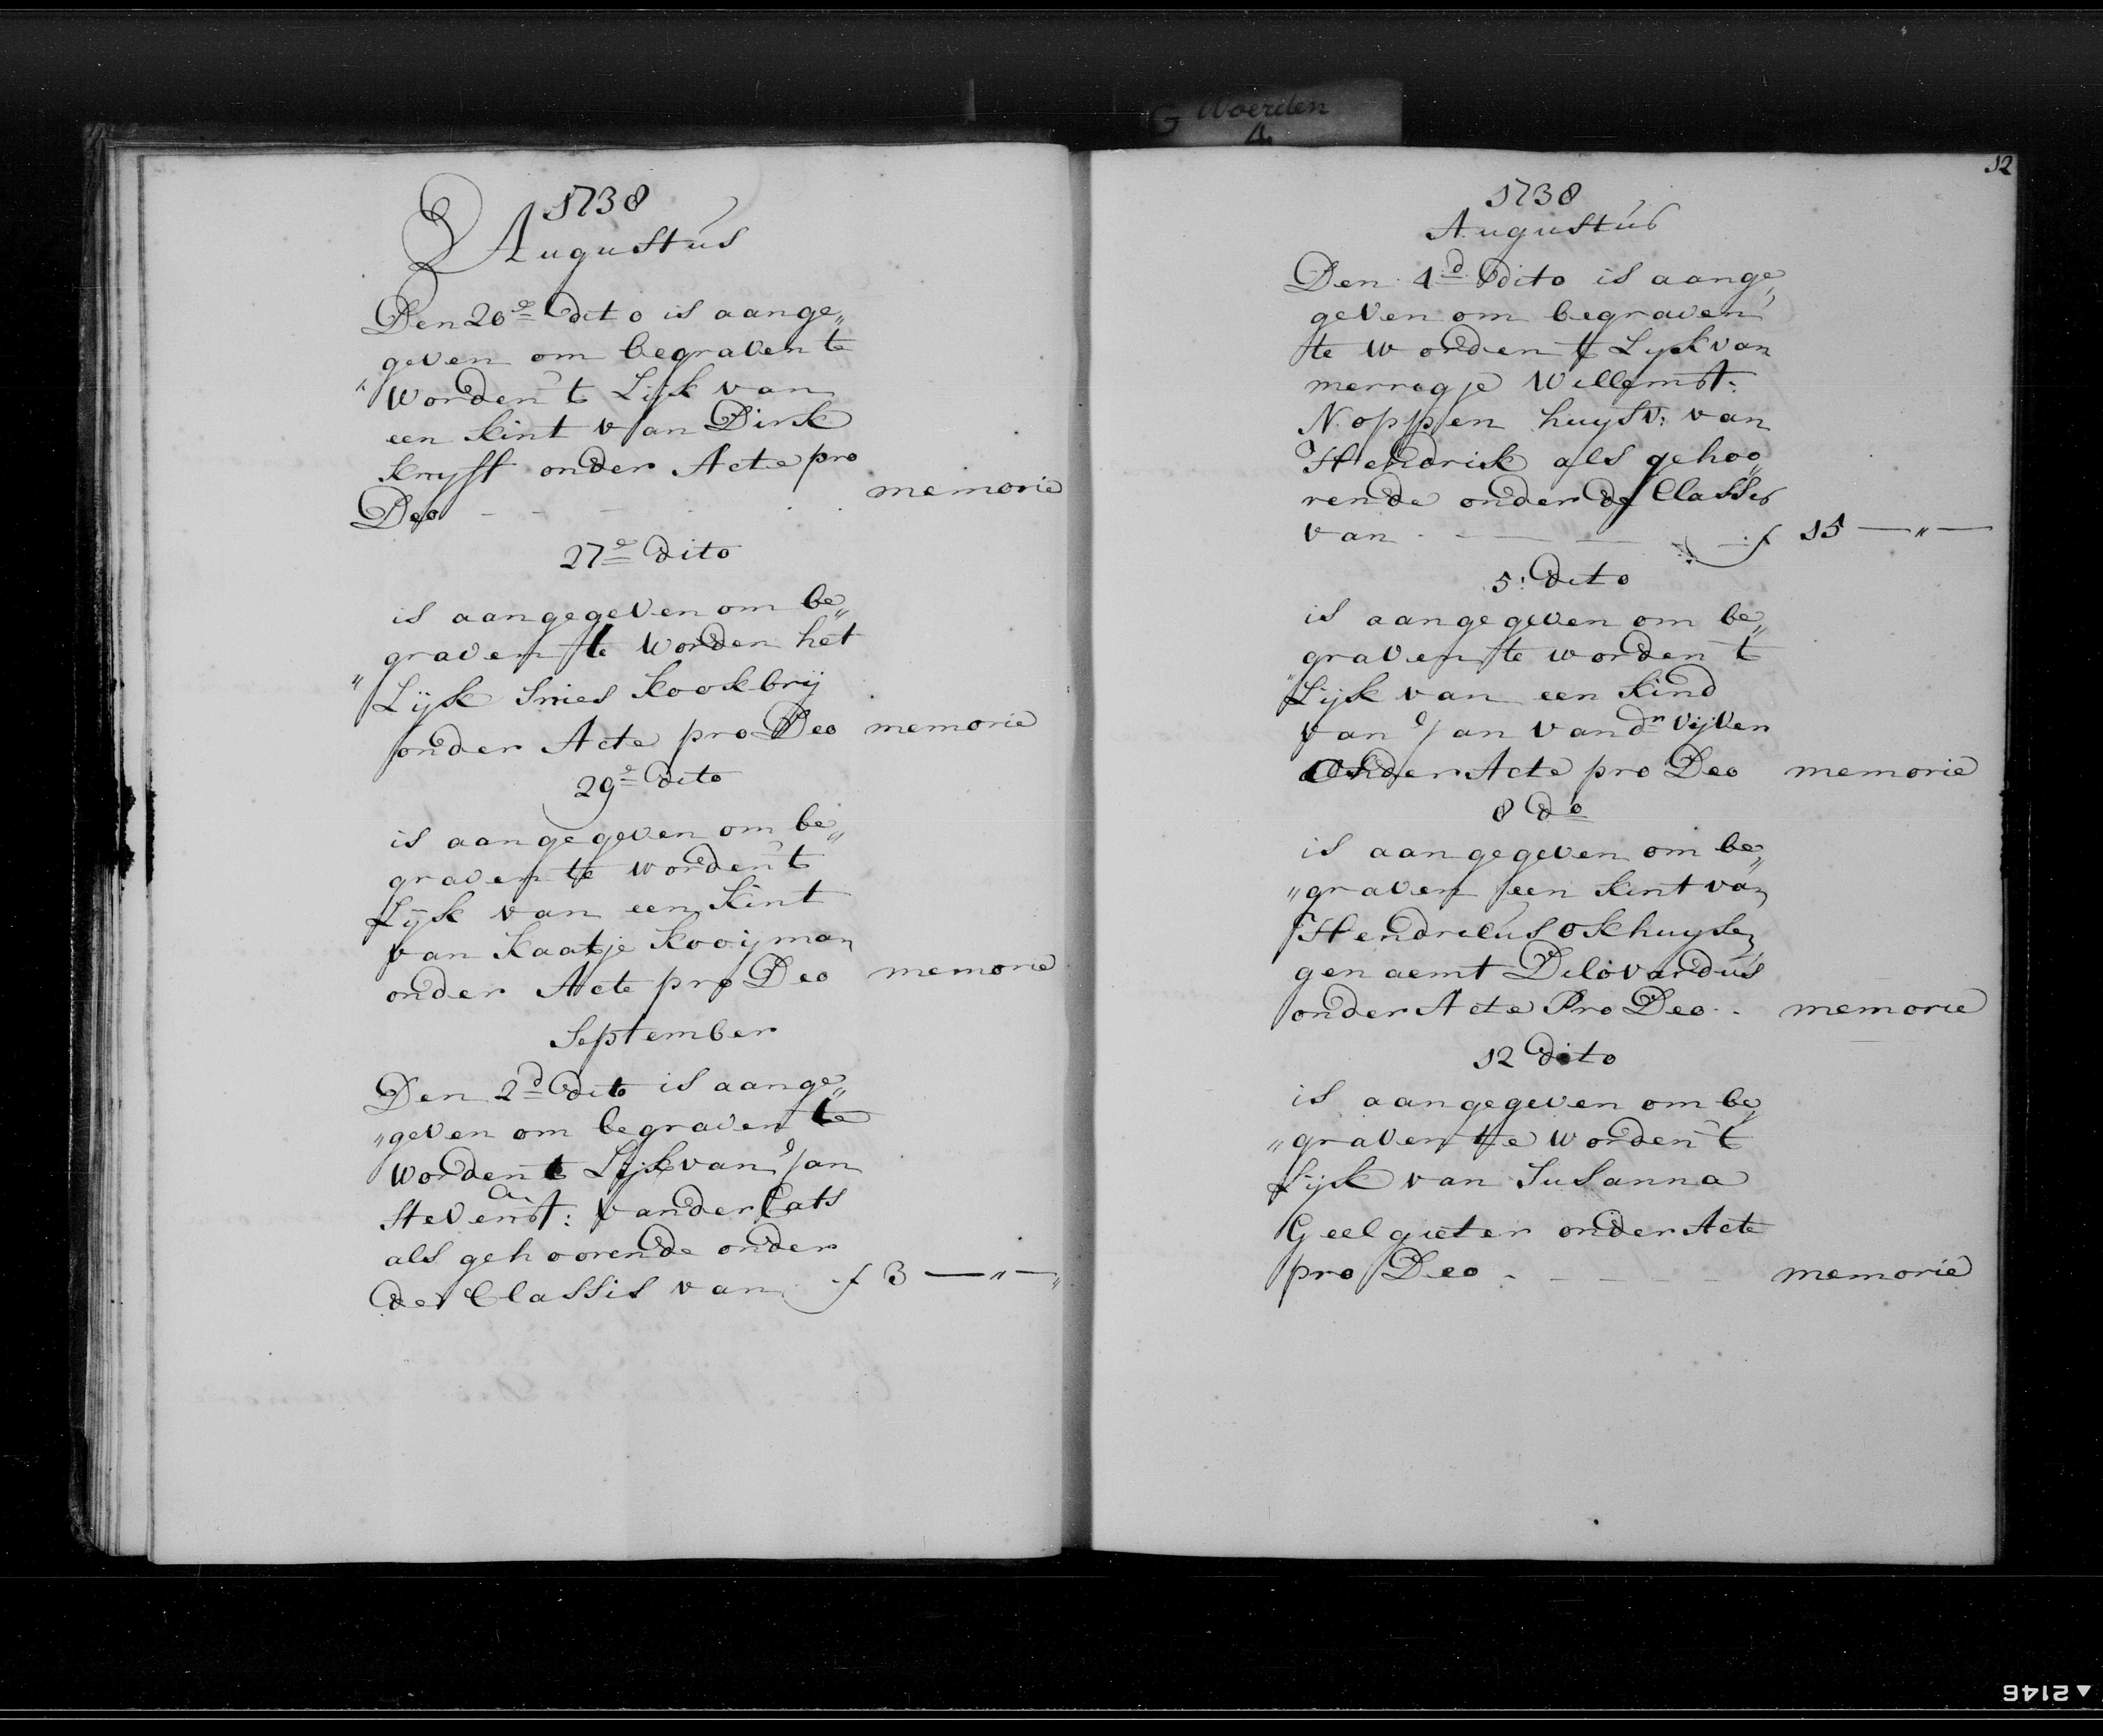 G Woerden
4
1738
Augustus
Den 20e dito is aange„
geven om begraven te
„worden t Lijk van
een kint van Dirk
kruyff onder Acte pro
Deo - - - memorie
27e dito
is aangegeven om be„
graven te worden het
„Lijk Kookbrij
onder Acte pro Deo memorie
29e dito
is aangegeven om be„
graven te worden t
Lijk van een Kint
van Kaatje Kooijman
onder Acte pro Deo memorie
September
Den 2d dito is aange„
„geven om begraven te
worden t Lijk van Jan
van der Cats
als gehoorende onder
de Classis van f 3 — „ — „
12
1738
Augustus
Den 4d dito is aange„
geven om begraven
te worden t Lyk van
merragje Willemst:
Noppen huysv: van
Hendrik als gehoo„
rende onder de Classis
van - — — f 15 — „ —
5: dito
is aangegeven om be„
graven te worden t
„Lijk van een Kind
van Jan van dn Vijver
Onder Acte pro Deo memorie
8 do
is aangegeven om be„
„graven een Kint van
Hendricus Okhuysen
genaemt
onder Acte Pro Deo - - memorie
12 dito
is aangegeven om be„
„graven te worden t
Lijk van Susanna
Geelgieter onder Acte
pro Deo - - - - - memorie
2146